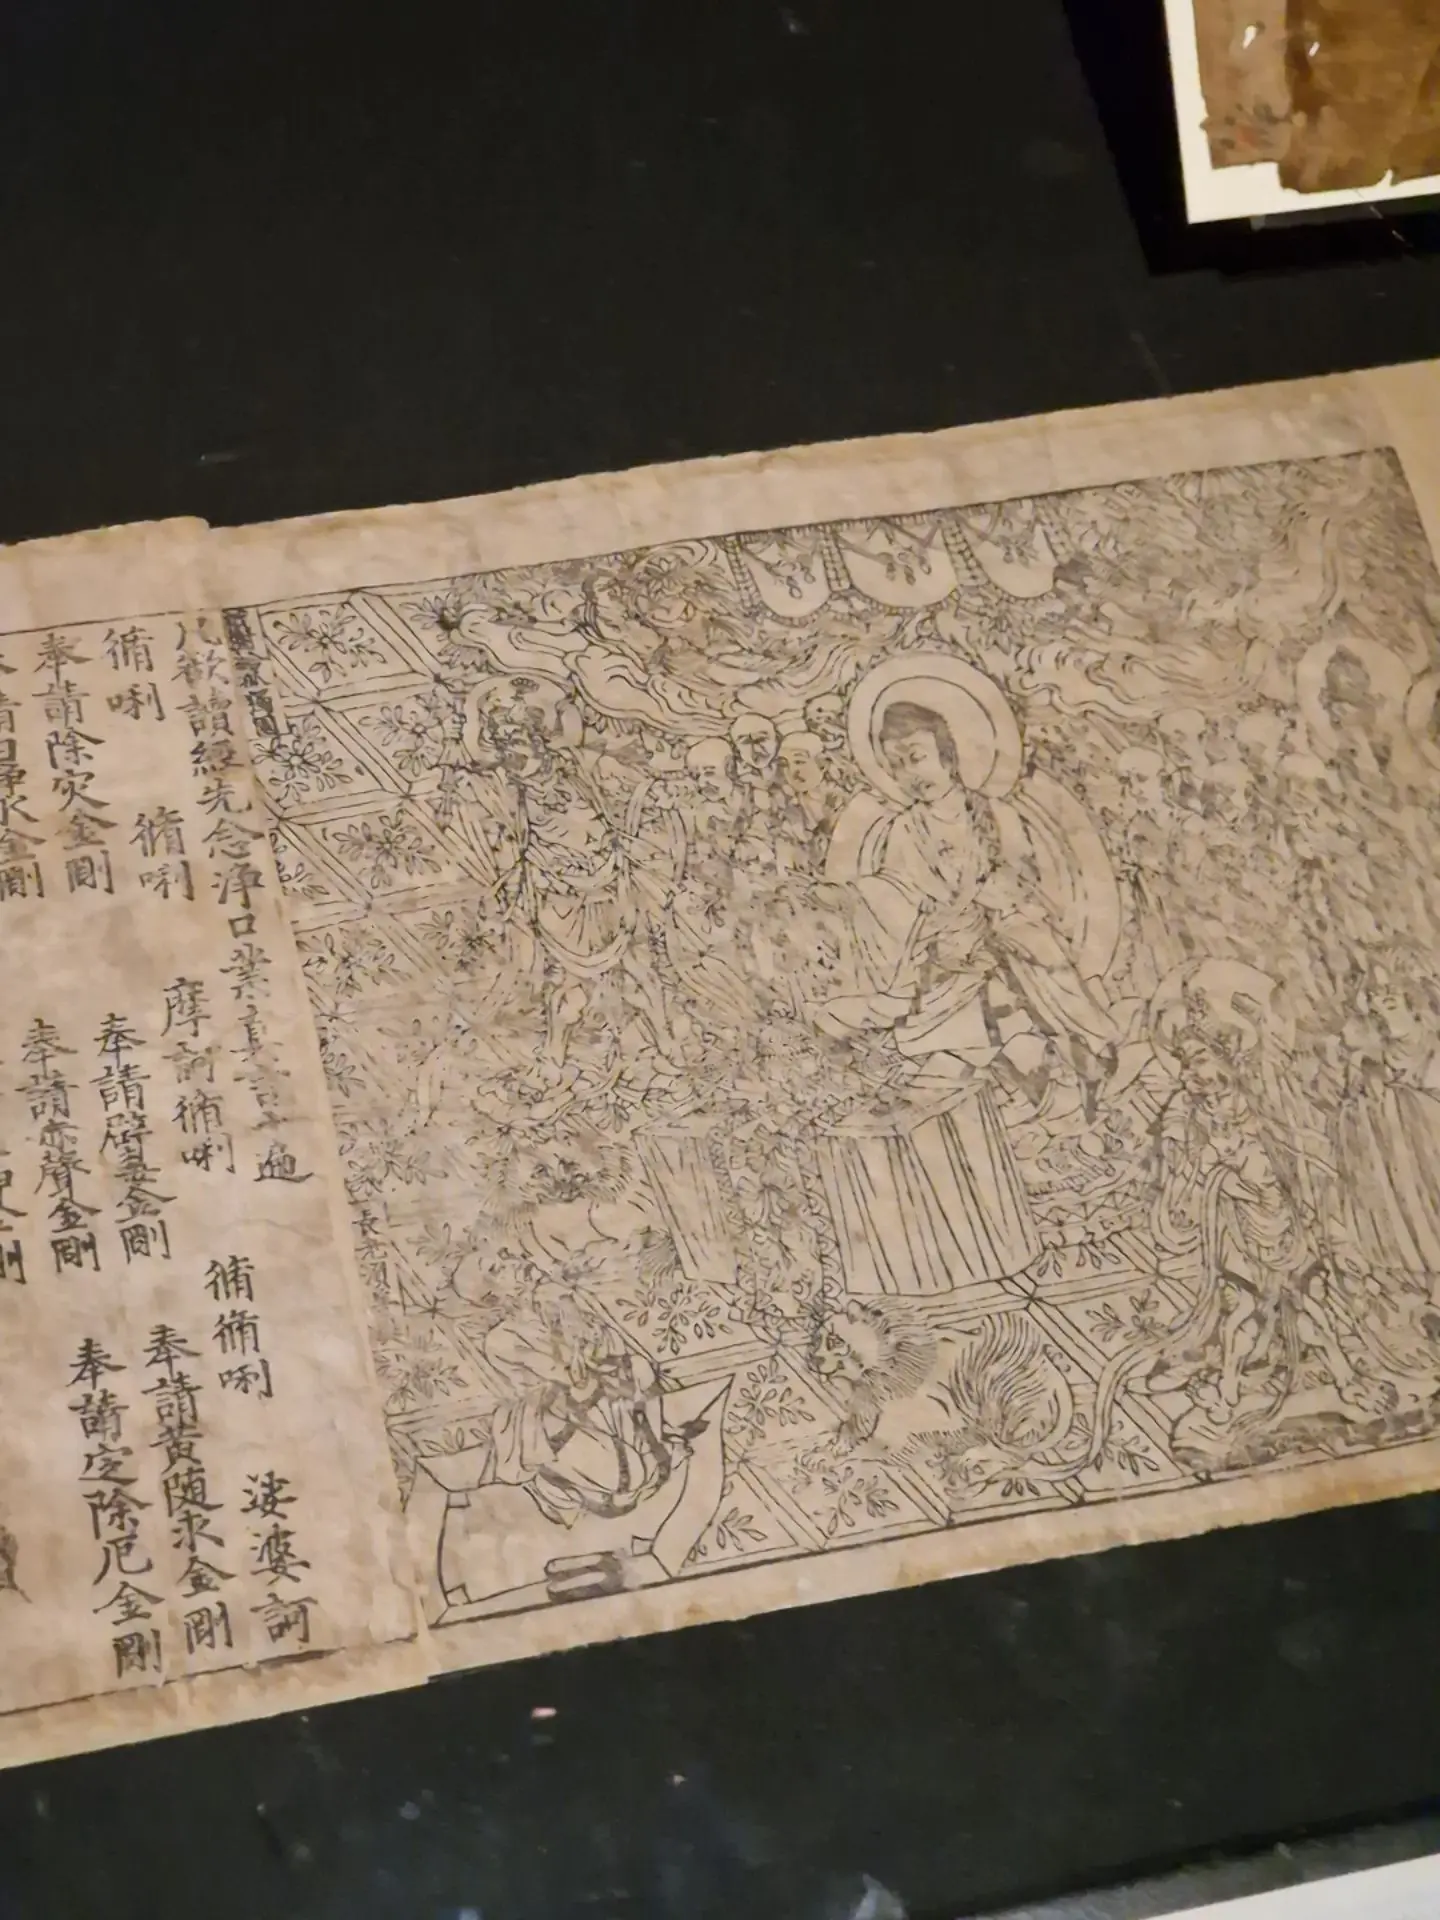 長老須菩
凡欲讀經先念淨口業真言一遍
脩唎 脩唎 摩訶脩唎 脩脩唎 娑婆訶
奉請除灾金剛 奉請辟毒金剛 奉請黃隨求金剛
請白淨水金剛 奉請赤聲金剛 奉請定除厄金剛